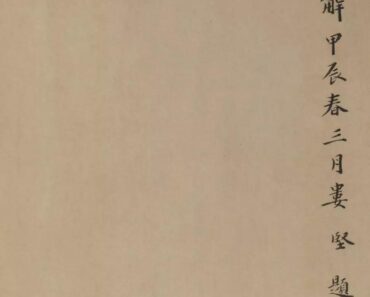 解甲辰春三月婁堅題